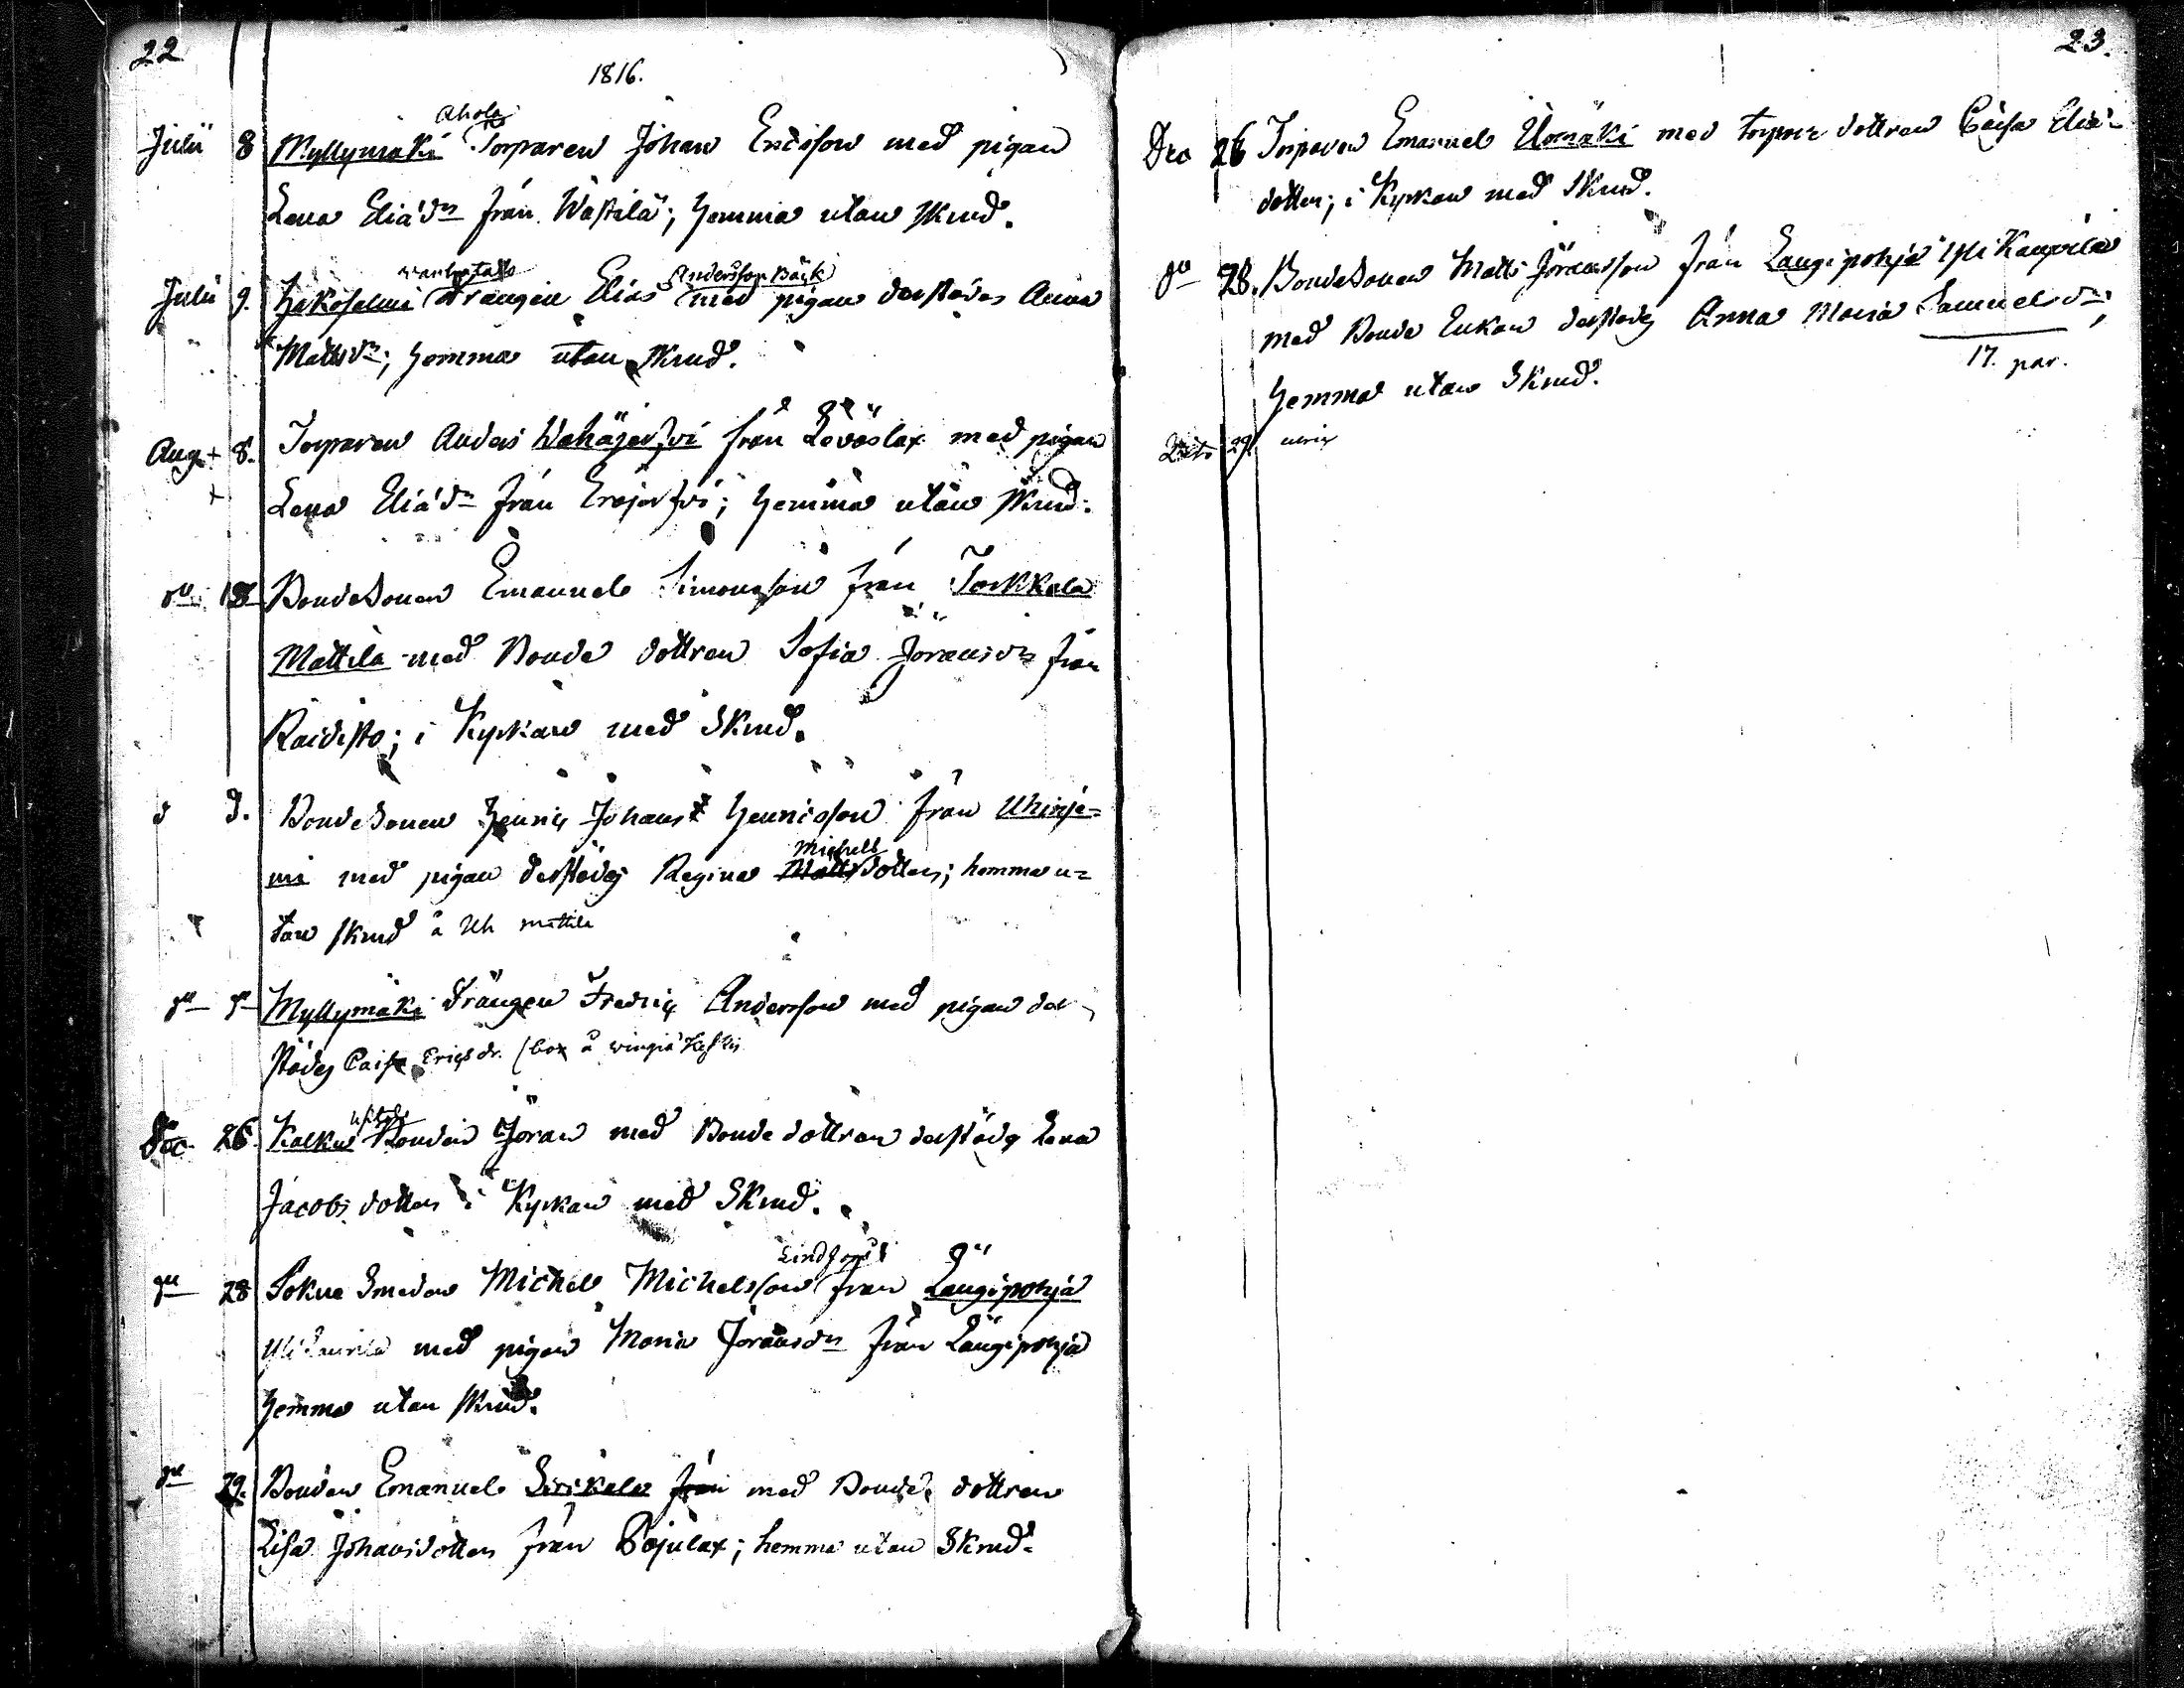 22
1816.
Ahola
Julii 8 Myllymäki Torparen Johan Ericsson med pigan
Lena Eliæ dr från Wästilä; hemma utan skrud.
Andersson Bäck
Julii 9. Hakosalmi Drängen Elias med pigan derstädes Anna
Matts dr; hemma utan skrud.
Aug. 8. Torparen Anders Wahäjerfvi från Löväslax med pigan
Lena Eliæ dr från Eräjerfvi; hemma utan skrud.
do 18 Bondesonen Emanuel Simonsson från Torkkala
Mattila med Bonde dottren Sofia Jöransdr från
Raidisto; i Kyrkan med Skrud.
d 9. Bondesonen Henric Johans Henricsson från Uhinje=
mi med pigan derstädes Regina Matts dotter; hemma u=
Michells
tan skrud å Uh Mattila
do do Myllymäki Drängen Fredric Andersson med pigan der
städes Caisa Ericsdr.
Dec. 26. Kalku Bonden Jöran med Bonde dottren derstädes Lena
Jacobs dotter i Kyrkan med Skrud.
Lindfors
do 28 Sokne Smeden Michel Michelsson från Längipohja
med pigan Maria Jöransdr från Längipohja
hemma utan skrud.
do 29. Bonden Emanuel Sirikala från med Bonde dottren
Lisa Johansdotter från Pojulax; hemma utan Skrud.
23.
Dec 26 Torparen Emanuel Uomäki med torpare dottren Caisa Eliæ
dotter; i Kyrkan med Skrud.
do 28. Bondesonen Matts Jöransson från Längipohja Yli Kaupila
med Bonde Enkan derstädes Anna Maria Samuels dr;
hemma utan Skrud.
17. par.
29.